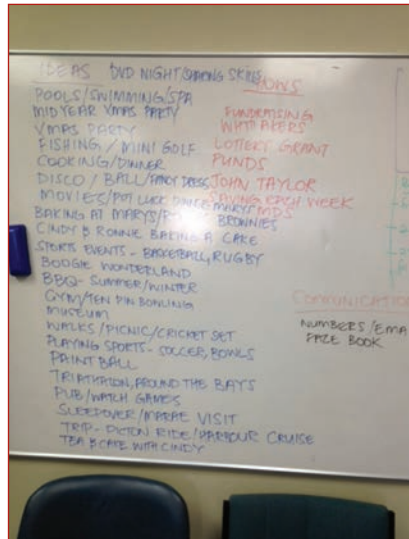 IDEAS DVD NIGHT/SHARING SKILLS
POOLS/SWIMMING/SPA
MID YEAR XMAS PARTY
XMAS PARTY
FISHING / MINI GOLF
COOKING/DINNER
DISCO / BALL/FANCY DRESS
MOVIES/POT LUCK DINNER MARYS
BAKING AT MARYS/ BROWNIES
CINDY & RONNIE BAKING A CAKE
SPORTS EVENTS - BASKETBALL, RUGBY
BOOGIE WONDERLAND
BBQ - SUMMER/WINTER
GYM/TEN PIN BOWLING
MUSEUM
WALKS/PICNIC/CRICKET SET
PLAYING SPORTS - SOCCER, BOWLS
PAINT BALL
TRIATHATLON, AROUND THE BAYS
PUB/WATCH GAMES
SLEEPOVER/MARAE VISIT
TRIP - PICTON RIDE/HARBOUR CRUISE
TEA & CAKE WITH CINDY
HOWS
FUNDRAISING
WHITTAKERS
LOTTERY GRANT
FUNDS
JOHN TAYLOR
SAVING EACH WEEK
MDS
COMMUNICATIO
NUMBERS/EMA
FAZE BOOK